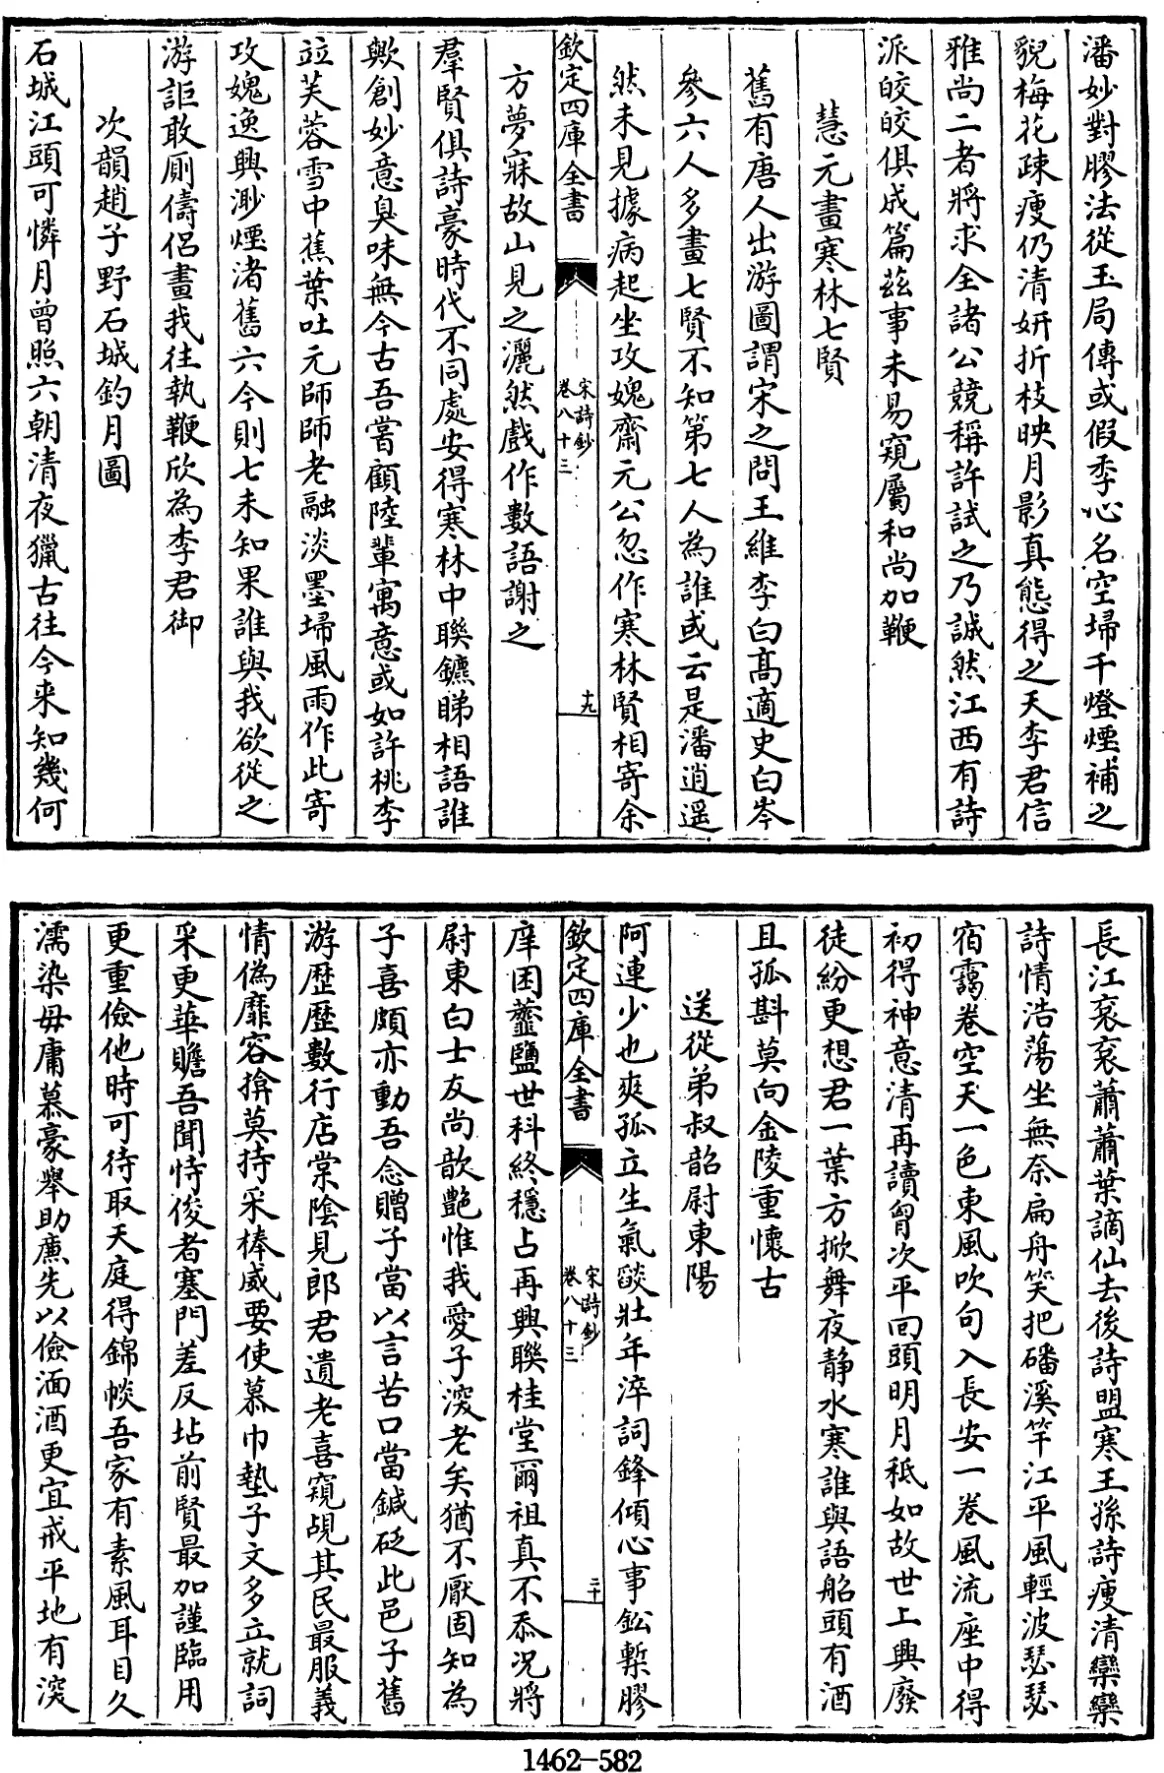 潘妙對膠法從玉局傳或假季心名空埽千燈煙補之
貌梅花疎瘦仍清妍折枝映月影真態得之天李君信
雅尚二者將求全諸公競稱許試之乃誠然江西有詩
派皎皎俱成篇茲事未易窺屬和尚加鞭
慧元畫寒林七賢
舊有唐人出游圖謂宋之問王維李白高適史白岑
參六人多畫七賢不知第七人為誰或云是潘逍遥
然未見據病起坐攻媿齋元公忽作寒林賢相寄余
欽定四庫全書
宋詩鈔
卷八十三
十九
方夢寐故山見之灑然戲作數語謝之
羣賢俱詩豪時代不同處安得寒林中聯鑣睇相語誰
歟創妙意臭味無今古吾嘗顧陸輩寓意或如許桃李
竝芙蓉雪中蕉葉吐元師師老融淡墨埽風雨作此寄
攻媿逸興渺煙渚舊六今則七未知果誰與我欲從之
游詎敢厠儔侶畫我往執鞭欣為李君御
次韻趙子野石城釣月圖
石城江頭可憐月曾照六朝清夜獵古往今来知幾何
長江衮衮蕭蕭葉謫仙去後詩盟寒王孫詩瘦清欒欒
詩情浩蕩坐無奈扁舟笑把磻溪竿江平風輕波瑟瑟
宿靄卷空天一色東風吹句入長安一卷風流座中得
初得神意清再讀胷次平回頭明月秖如故世上興廢
徒紛更想君一葉方掀舞夜静水寒誰與語船頭有酒
且孤斟莫向金陵重懷古
送從弟叔韶尉東陽
阿連少也爽孤立生氣燄壯年淬詞鋒傾心事鈆槧膠
欽定四庫全書
宋詩鈔
卷八十三
二十
庠困虀鹽世科終穩占再興聯桂堂爾祖真不忝况將
尉東白士友尚歆艶惟我愛子深老矣猶不厭固知為
子喜頗亦動吾念贈子當以言苦口當鍼砭此邑子舊
游歷歷數行店棠陰見郎君遺老喜窺覘其民最服義
情偽靡容揜莫持采棒威要使慕巾墊子文多立就詞
采更華贍吾聞恃俊者塞門差反坫前賢最加謹臨用
更重儉他時可待取天庭得錦帴吾家有素風耳目久
濡染毋庸慕豪舉助廉先以儉湎酒更宜戒平地有深
1462-582